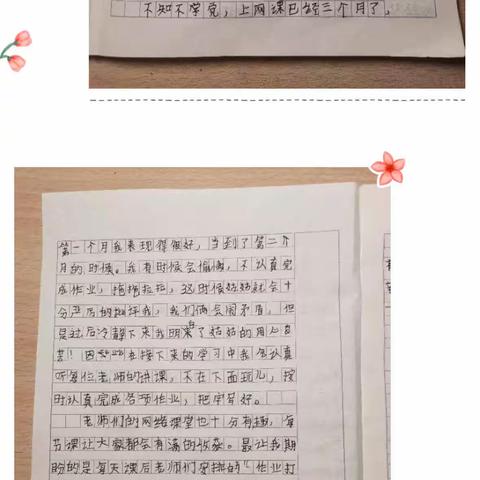 不知不学觉，上网课已经三个月了，
第一个月我表现得很好，当到了第二个
月的时候。我有时候会偷懒，不认真完
成作业，拖拖拉拉，这时候姑姑就会十
分严厉的批评我，我们俩会闹矛盾，但
是过后冷静下来我明白了姑姑的用心良
苦！因此在接下来的学习中我会认真
听每位老师的讲课，不在下面玩儿，按
时认真完成各项作业，把字写好。
老师们的网络课堂也十分有趣，每
节课让大家都会有满的收获。最让我期
盼的是每天课后老师们安排的“作业打